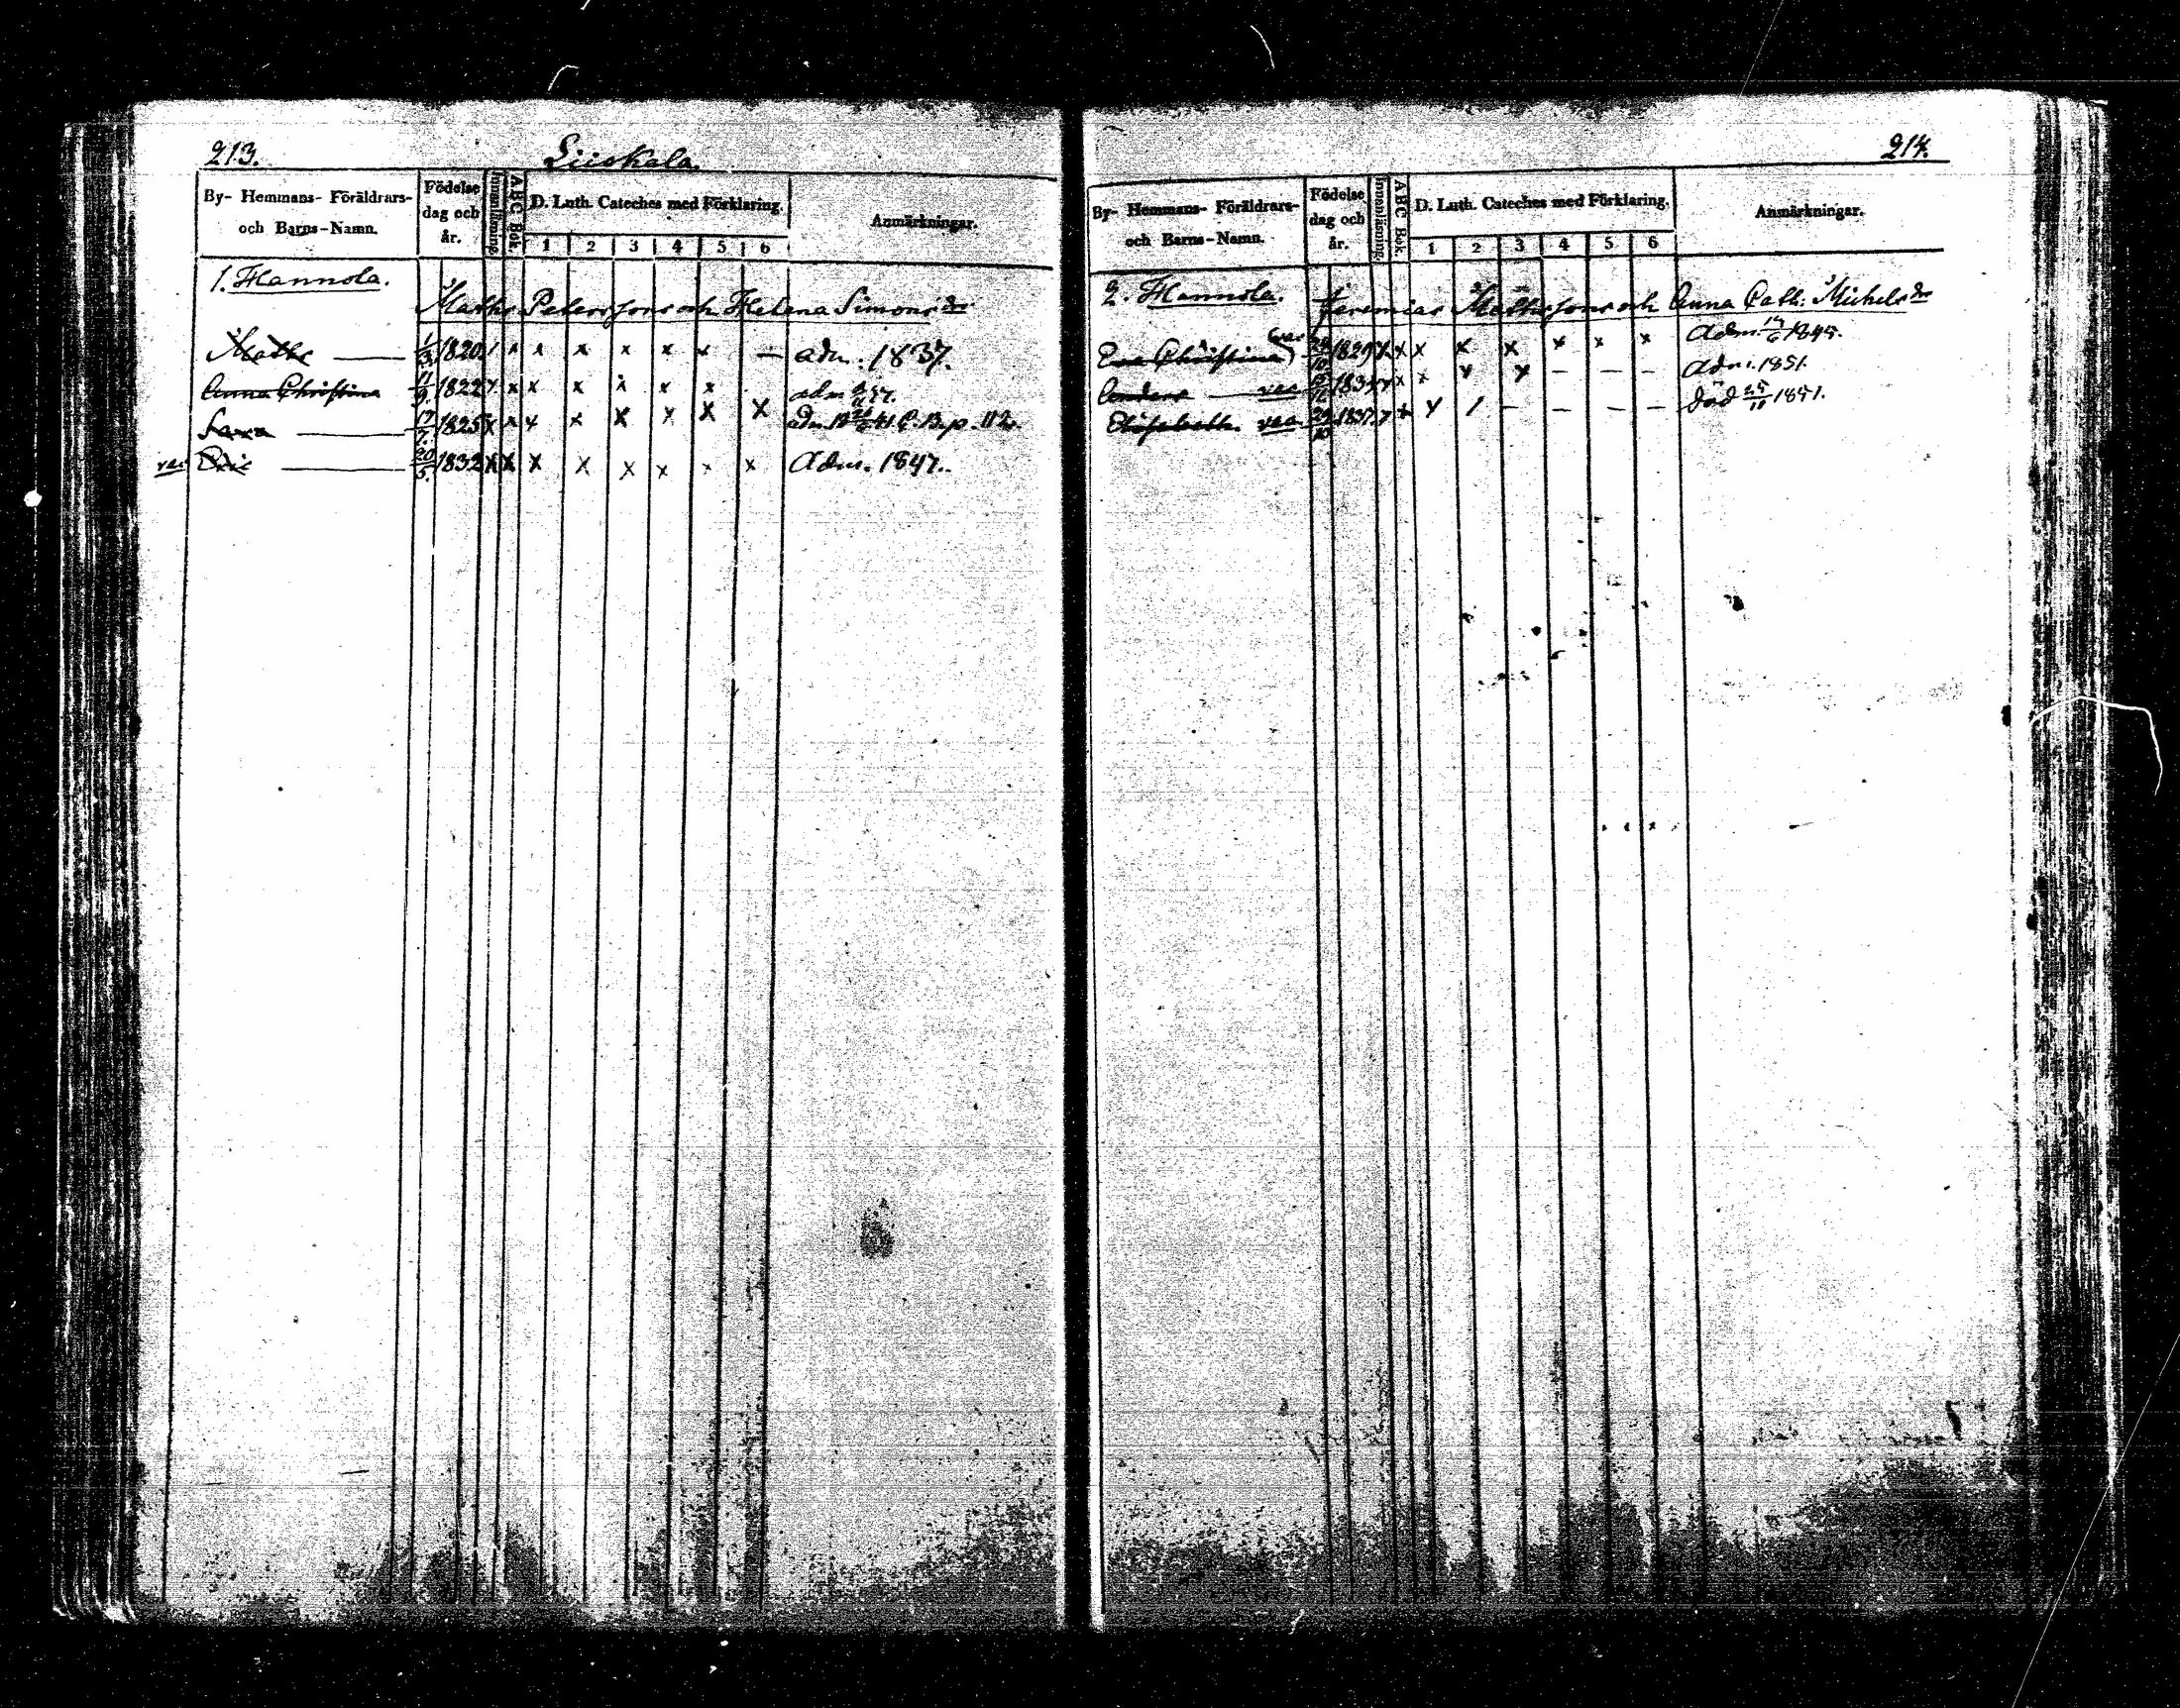 213.
Liiskala.
By- Hemmans- Föräldrars- och Barns-Namn.
Födelse dag och år.
Innanläsning.
ABC Bok.
D. Luth. Cateches med Förklaring.
1 2 3 4 5 6
Anmärkningar.
1. Hannola.
Maths Petersson och Helena Simonsdr
Maths 1/3 1820 / x x x x x x — adm. 1837.
Anna Christina 11/9 1822 x x x x x x x adm
Sara 17/7. 1825 x x x x x x x x adm. C. B. p. 112
vac Eric 20/5. 1832 x x x x x x x x Adm. 1847.
214.
By- Hemmans- Föräldrars- och Barns-Namn.
Födelse dag och år.
Innanläsning.
ABC Bok.
D. Luth. Cateches med Förklaring.
1 2 3 4 5 6
Anmärkningar.
2. Hannola.
Jeremias Mathsson och Anna Cath: Michelsdr
Eva Christina vac 1829 x x x x x x x x Adm. 1845.
Anders vac 1834 x x x x x — — — Adm. 1851.
Elisabeth vac 1837 x x x / — — — — död 25/11 1851.